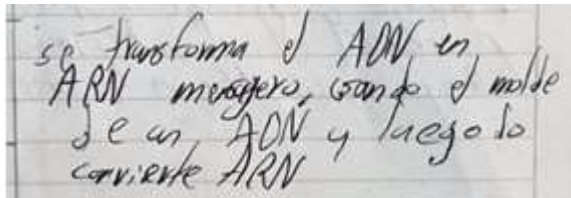 se transforma el ADN en
ARN mensajero, usando el molde
de un ADN y luego lo
convierte ARN